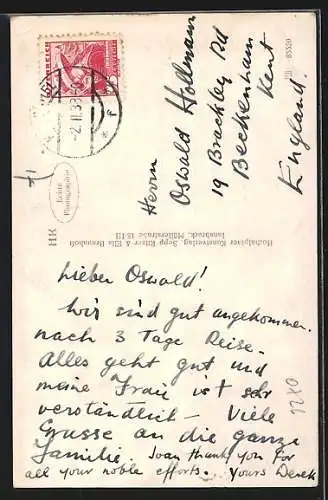 ÖSTERREICH
-2.II.38
Herrn
Oswald Hollmann
19 Brackley Rd
Beckenham
Kent
England.
III 85520
Echte
Photographie
HR
Hochalpiner Kunstverlag, Sepp Ritzer & Ella Braunhofi
Innsbruck, Müllerstrasse 15/III
Lieber Oswald!
Wir sind gut angekommen.
nach 3 Tage Reise.
Alles geht gut und
meine Frau ist sehr
verständlich – Viele
Grusse an die ganze
Familie. Joan thank you for
all your noble efforts. Yours Derek
1240